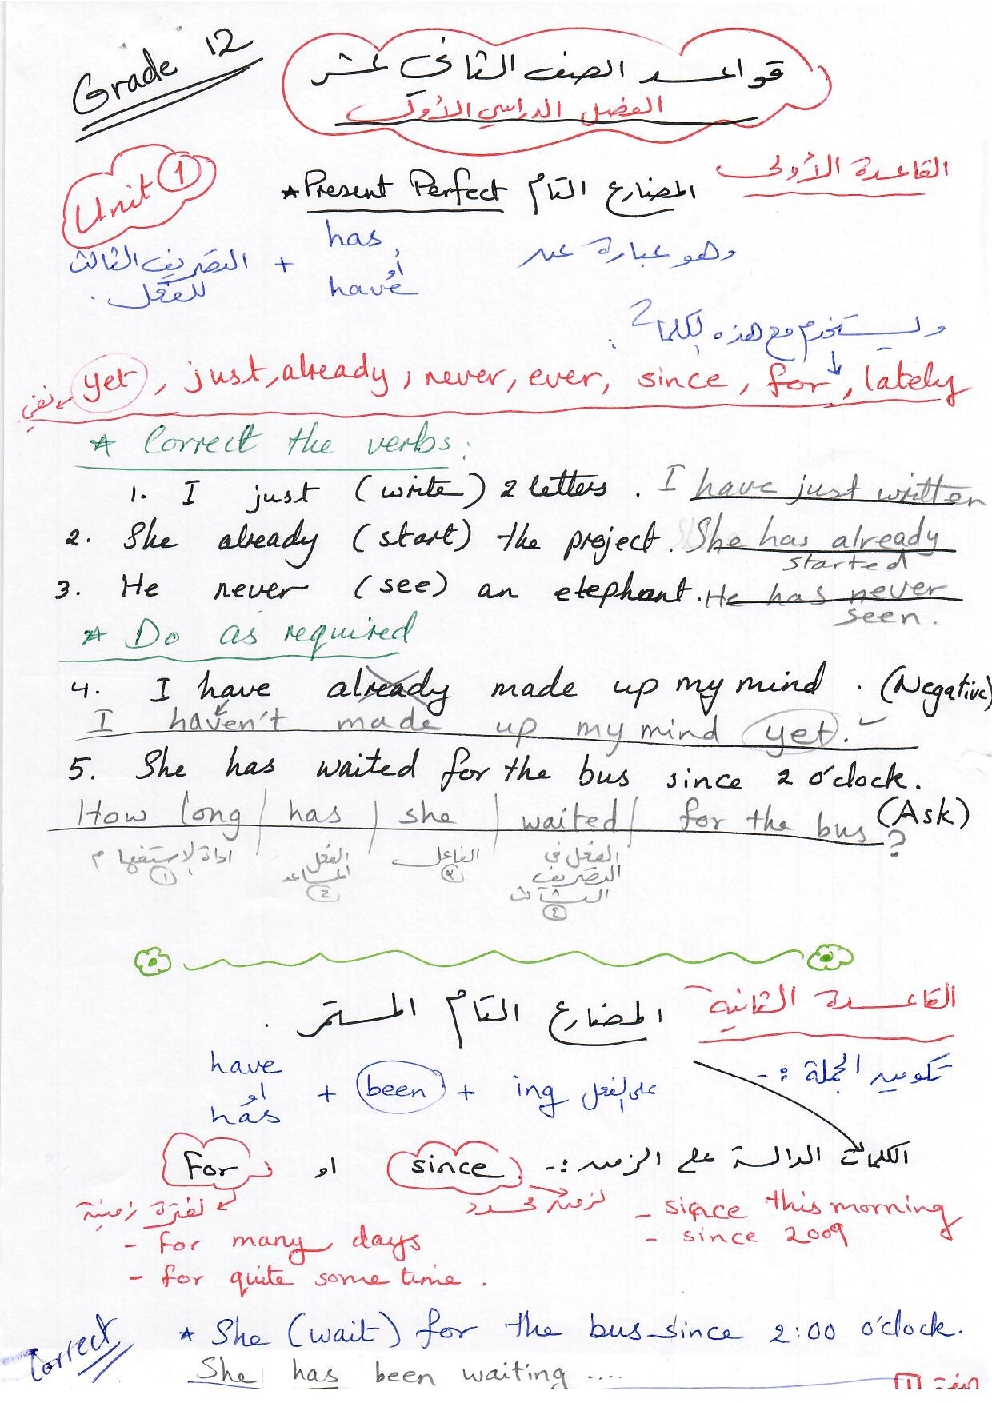 Grade 12
قواعد الصف الثاني عشر
الفصل الدراسي الأول
Unit 1
القاعدة الأولى
* Present Perfect المضارع التام
وهو عبارة عن
has أو have + التصريف الثالث للفعل.
ويستخدم مع هذه الكلمات:
نفي yet, just, already, never, ever, since, for, lately
* Correct the verbs:
1. I just (write) 2 letters. I have just written
2. She already (start) the project. She has already started
3. He never (see) an elephant. He has never seen.
* Do as required
4. I have already made up my mind. (Negative)
I haven't made up my mind yet.
5. She has waited for the bus since 2 o'clock. (Ask)
How long / has / she / waited / for the bus?
اداة الاستفهام ١
الفعل المساعد ٢
الفاعل ٣
الفعل في التصريف الثالث ٤
القاعدة الثانية المضارع التام المستمر.
تكوين الجملة :-
have أو has + been + ing على الفعل
الكلمات الدالة على الزمن :- since او For
لزمن محدد
- since this morning
- since 2009
لفترة زمنية
- for many days
- for quite some time.
Correct
* She (wait) for the bus since 2:00 o'clock.
She has been waiting ....